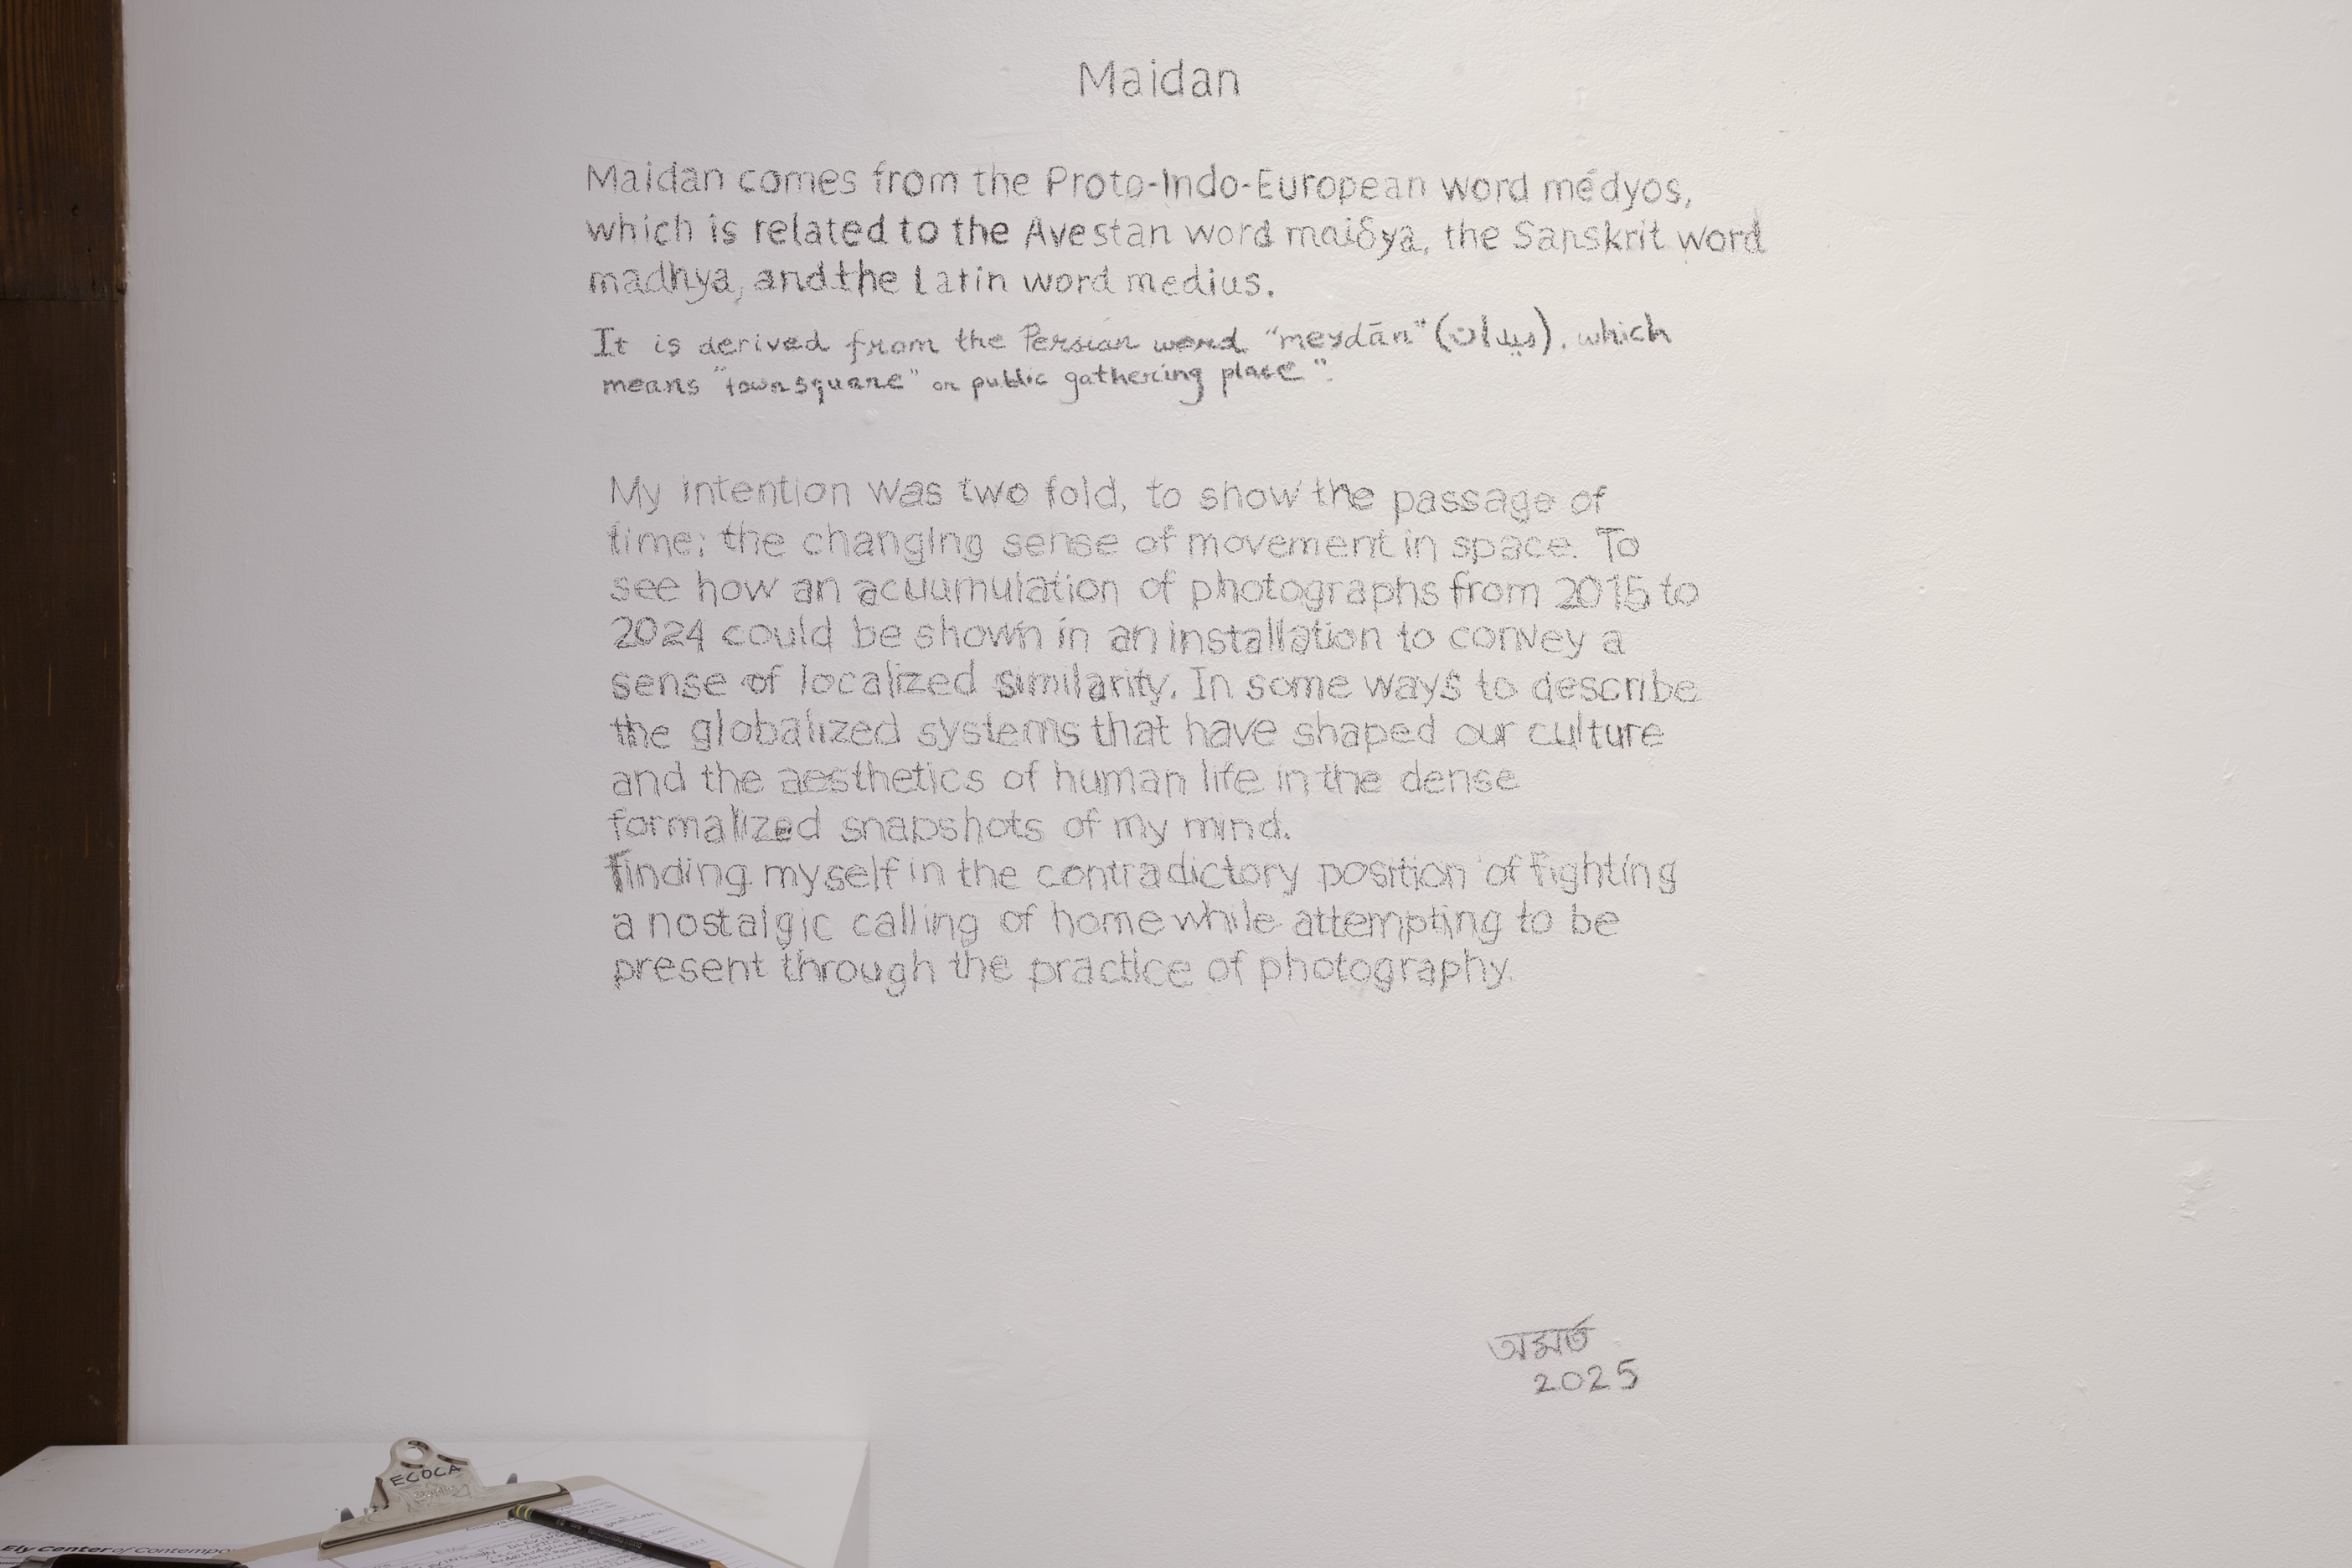 Maidan
Maidan comes from the Proto-Indo-European word médyos,
which is related to the Avestan word maiδya, the Sanskrit word
madhya, and the Latin word medius.
It is derived from the Persian word "meydān" (میدان), which
means "town square" or public gathering place".
My intention was two fold, to show the passage of
time; the changing sense of movement in space. To
see how an acuumulation of photographs from 2015 to
2024 could be shown in an installation to convey a
sense of localized similarity. In some ways to describe
the globalized systems that have shaped our culture
and the aesthetics of human life in the dense
formalized snapshots of my mind.
Finding myself in the contradictory position of fighting
a nostalgic calling of home while attempting to be
present through the practice of photography.
2025
ECOCA
Ely Center of Contempo